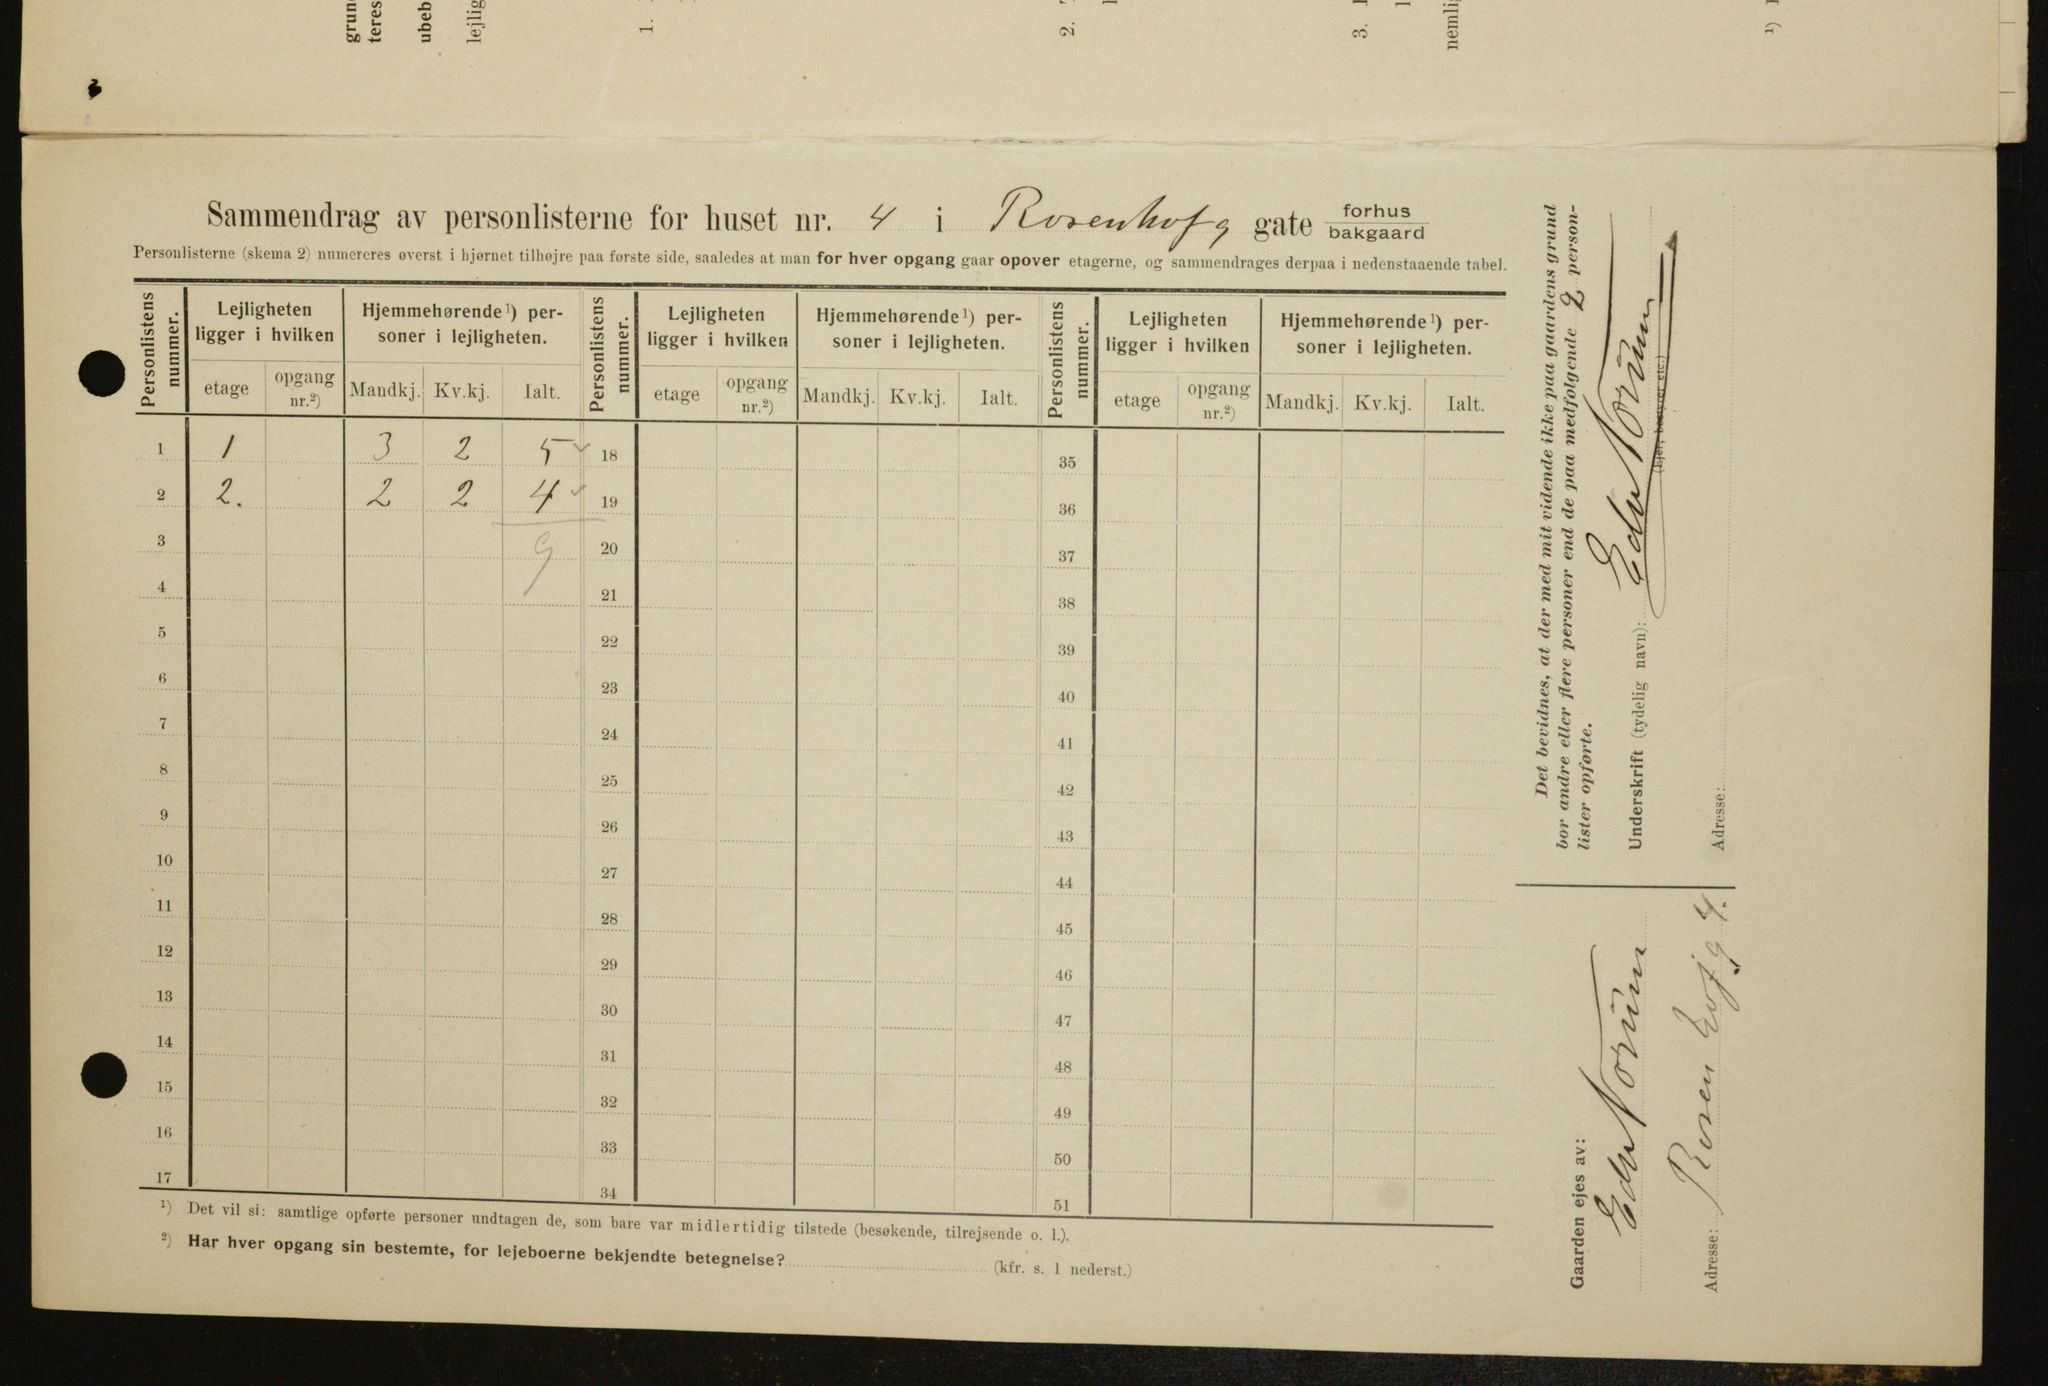 grun
teres
ubeb
lejlig
1.
2.
3.
nemlig
¹)
Sammendrag av personlisterne for huset nr. 4 i Rosenhofg gate forhus bakgaard
Personlisterne (skema 2) numereres øverst i hjørnet tilhøjre paa første side, saaledes at man for hver opgang gaar opover etagerne, og sammendrages derpaa i nedenstaaende tabel.
Personlistens nummer. Lejligheten ligger i hvilken Hjemmehørende¹) personer i lejligheten. Personlistens nummer. Lejligheten ligger i hvilken Hjemmehørende¹) personer i lejligheten. Personlistens nummer. Lejligheten ligger i hvilken Hjemmehørende¹) personer i lejligheten.
etage opgang nr.²) Mandkj. Kv.kj. Ialt. etage opgang nr.²) Mandkj. Kv.kj. Ialt. etage opgang nr.²) Mandkj. Kv.kj. Ialt.
1 1 3 2 5 18 35
2 2. 2 2 4 19 36
3 9 20 37
4 21 38
5 22 39
6 23 40
7 24 41
8 25 42
9 26 43
10 27 44
11 28 45
12 29 46
13 30 47
14 31 48
15 32 49
16 33 50
17 34 51
¹) Det vil si: samtlige opførte personer undtagen de, som bare var midlertidig tilstede (besøkende, tilrejsende o. l.).
²) Har hver opgang sin bestemte, for lejeboerne bekjendte betegnelse? (kfr. s. 1 nederst.)
Det bevidnes, at der med mit vidende ikke paa gaardens grund
bor andre eller flere personer end de paa medfølgende 2 person-
lister opførte.
Underskrift (tydelig navn): Edv Norum
(Ejer, bestyrer etc.)
Adresse:
Gaarden ejes av:
Edv Norum
Adresse: Rosenhofg 4.